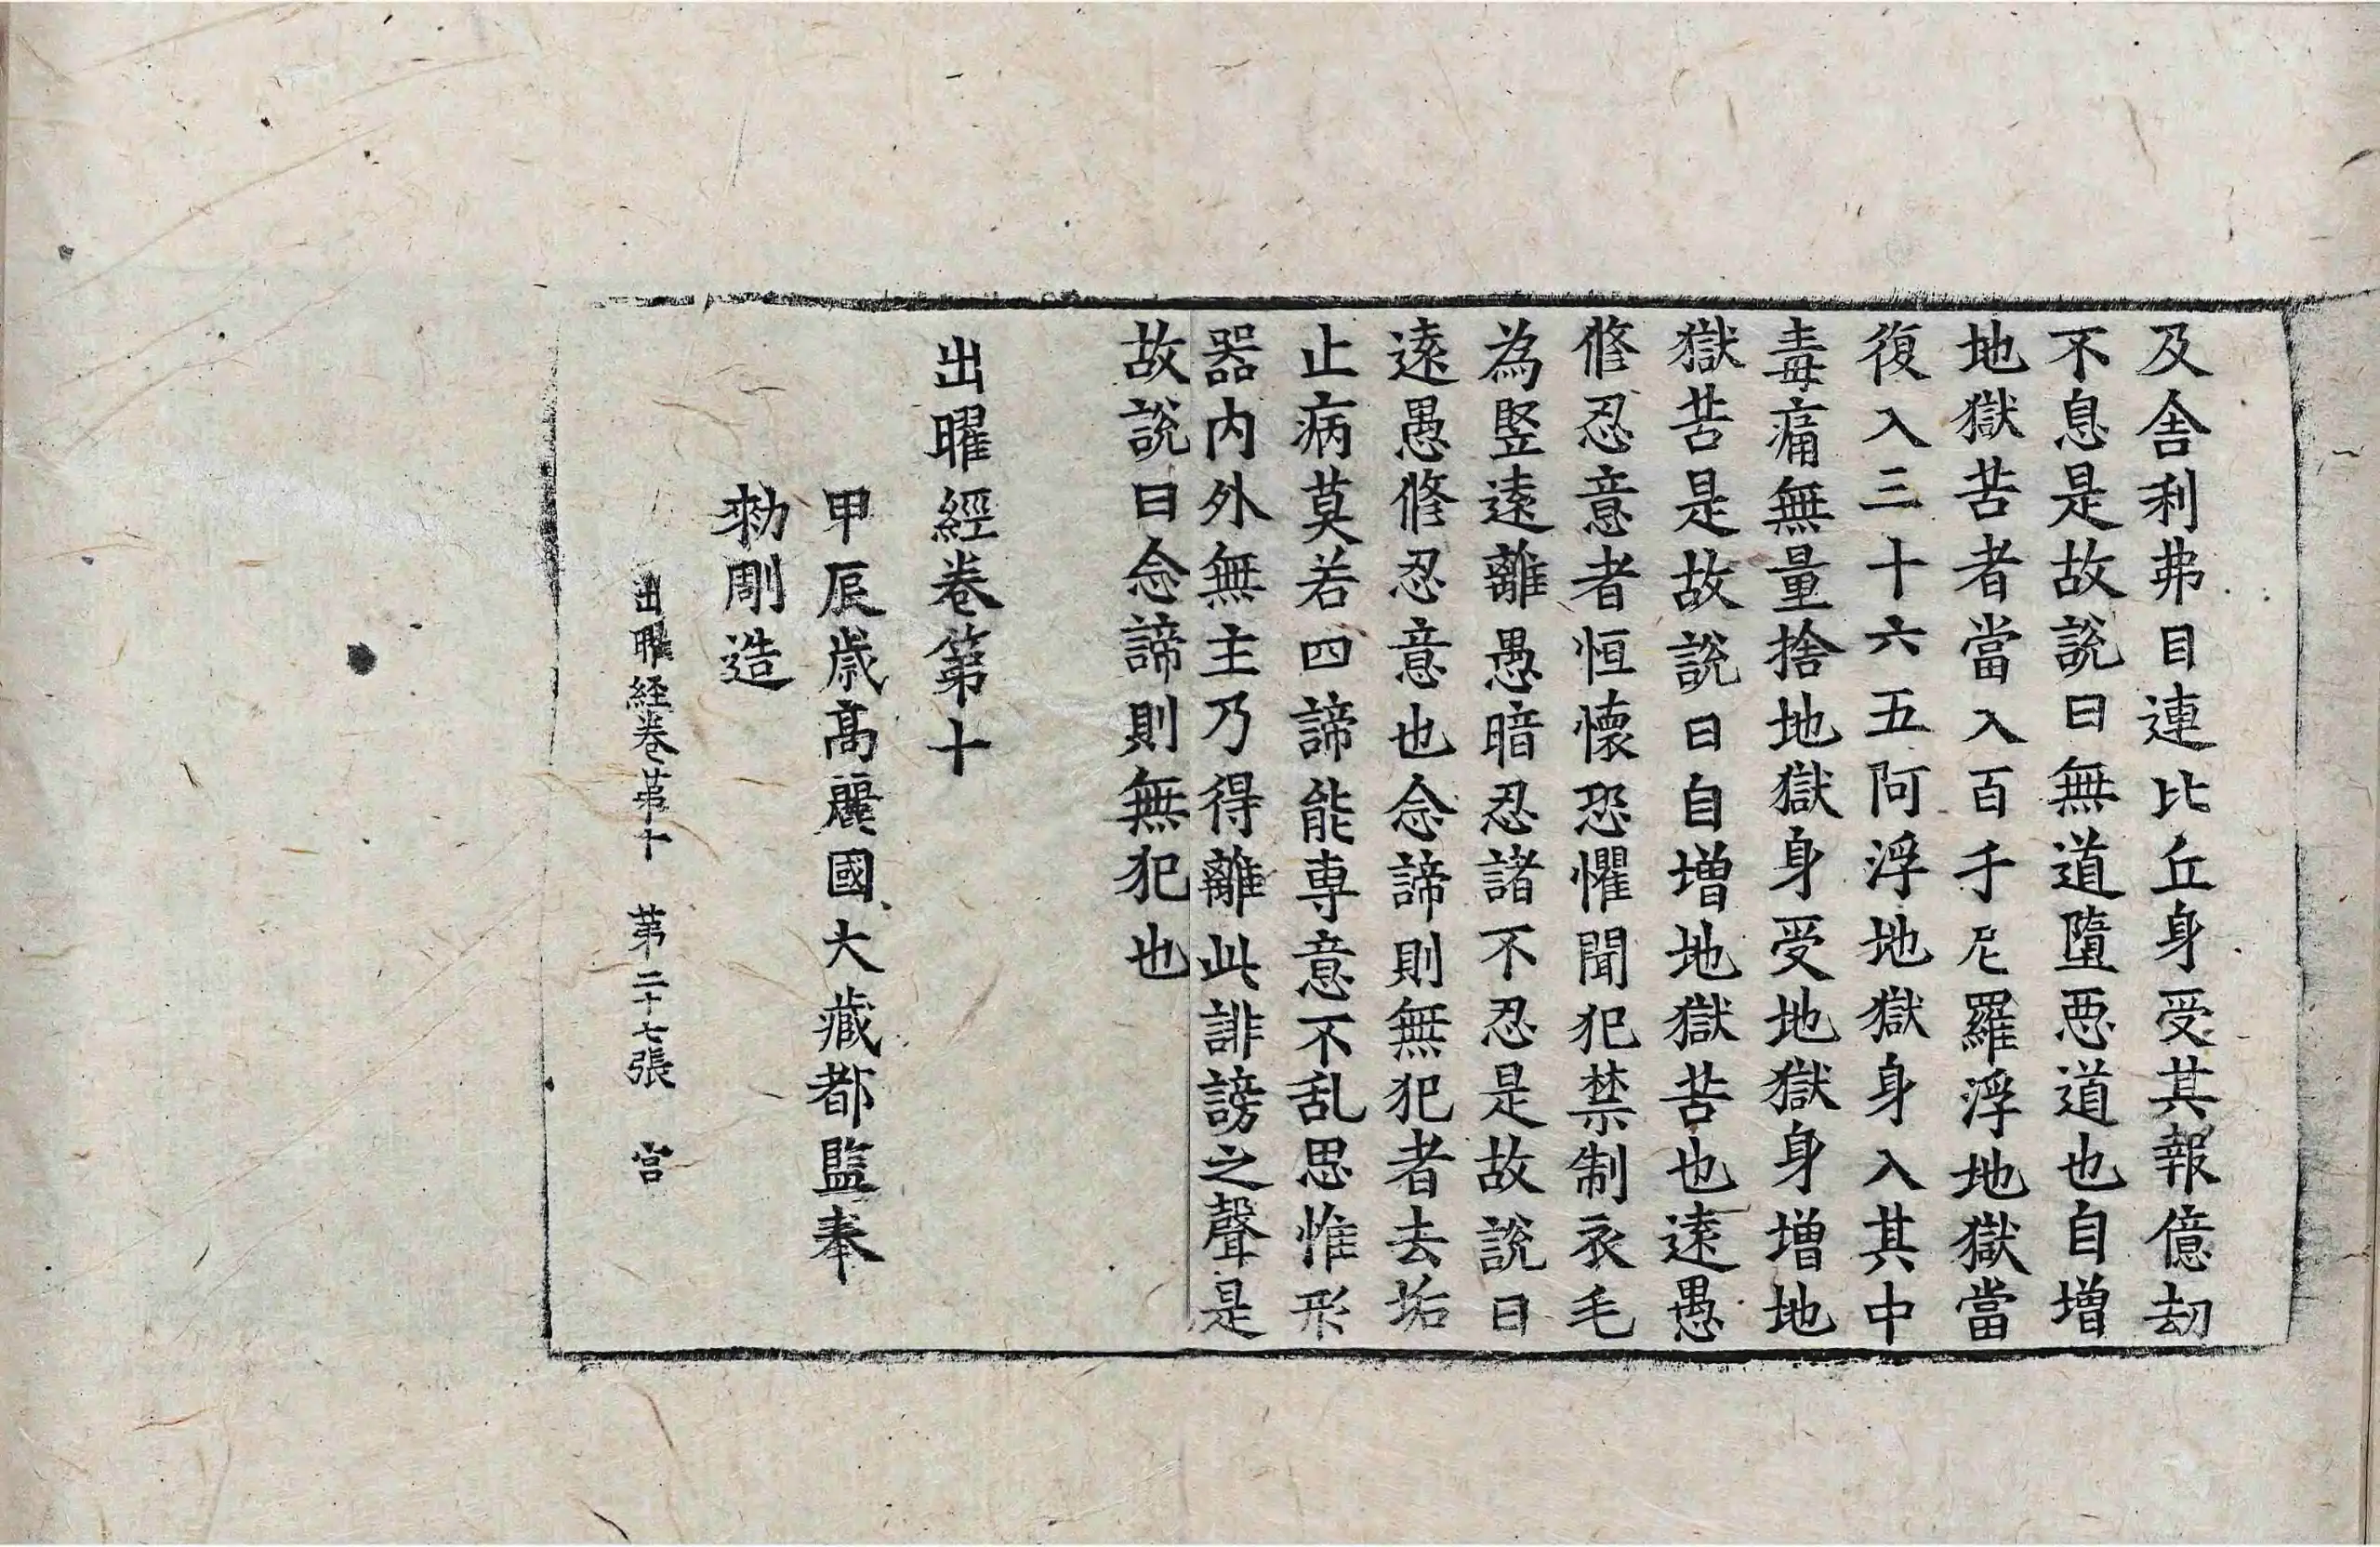 及舍利弗目連比丘身受其報億劫
不息是故說曰無道墮惡道也自增
地獄苦者當入百千尼羅浮地獄當
復入三十六五阿浮地獄身入其中
毒痛無量捨地獄身受地獄身增地
獄苦是故說曰自增地獄苦也遠愚
修忍意者恒懷恐懼聞犯禁制衣毛
為竪遠離愚暗忍諸不忍是故說曰
遠愚修忍意也念諦則無犯者去垢
止病莫若四諦能専意不乱思惟形
器内外無主乃得離此誹謗之聲是
故說曰念諦則無犯也
出曜經卷第十
甲辰歲高麗國大藏都監奉
勑雕造
出曜経卷苐十 苐二十七張 宫